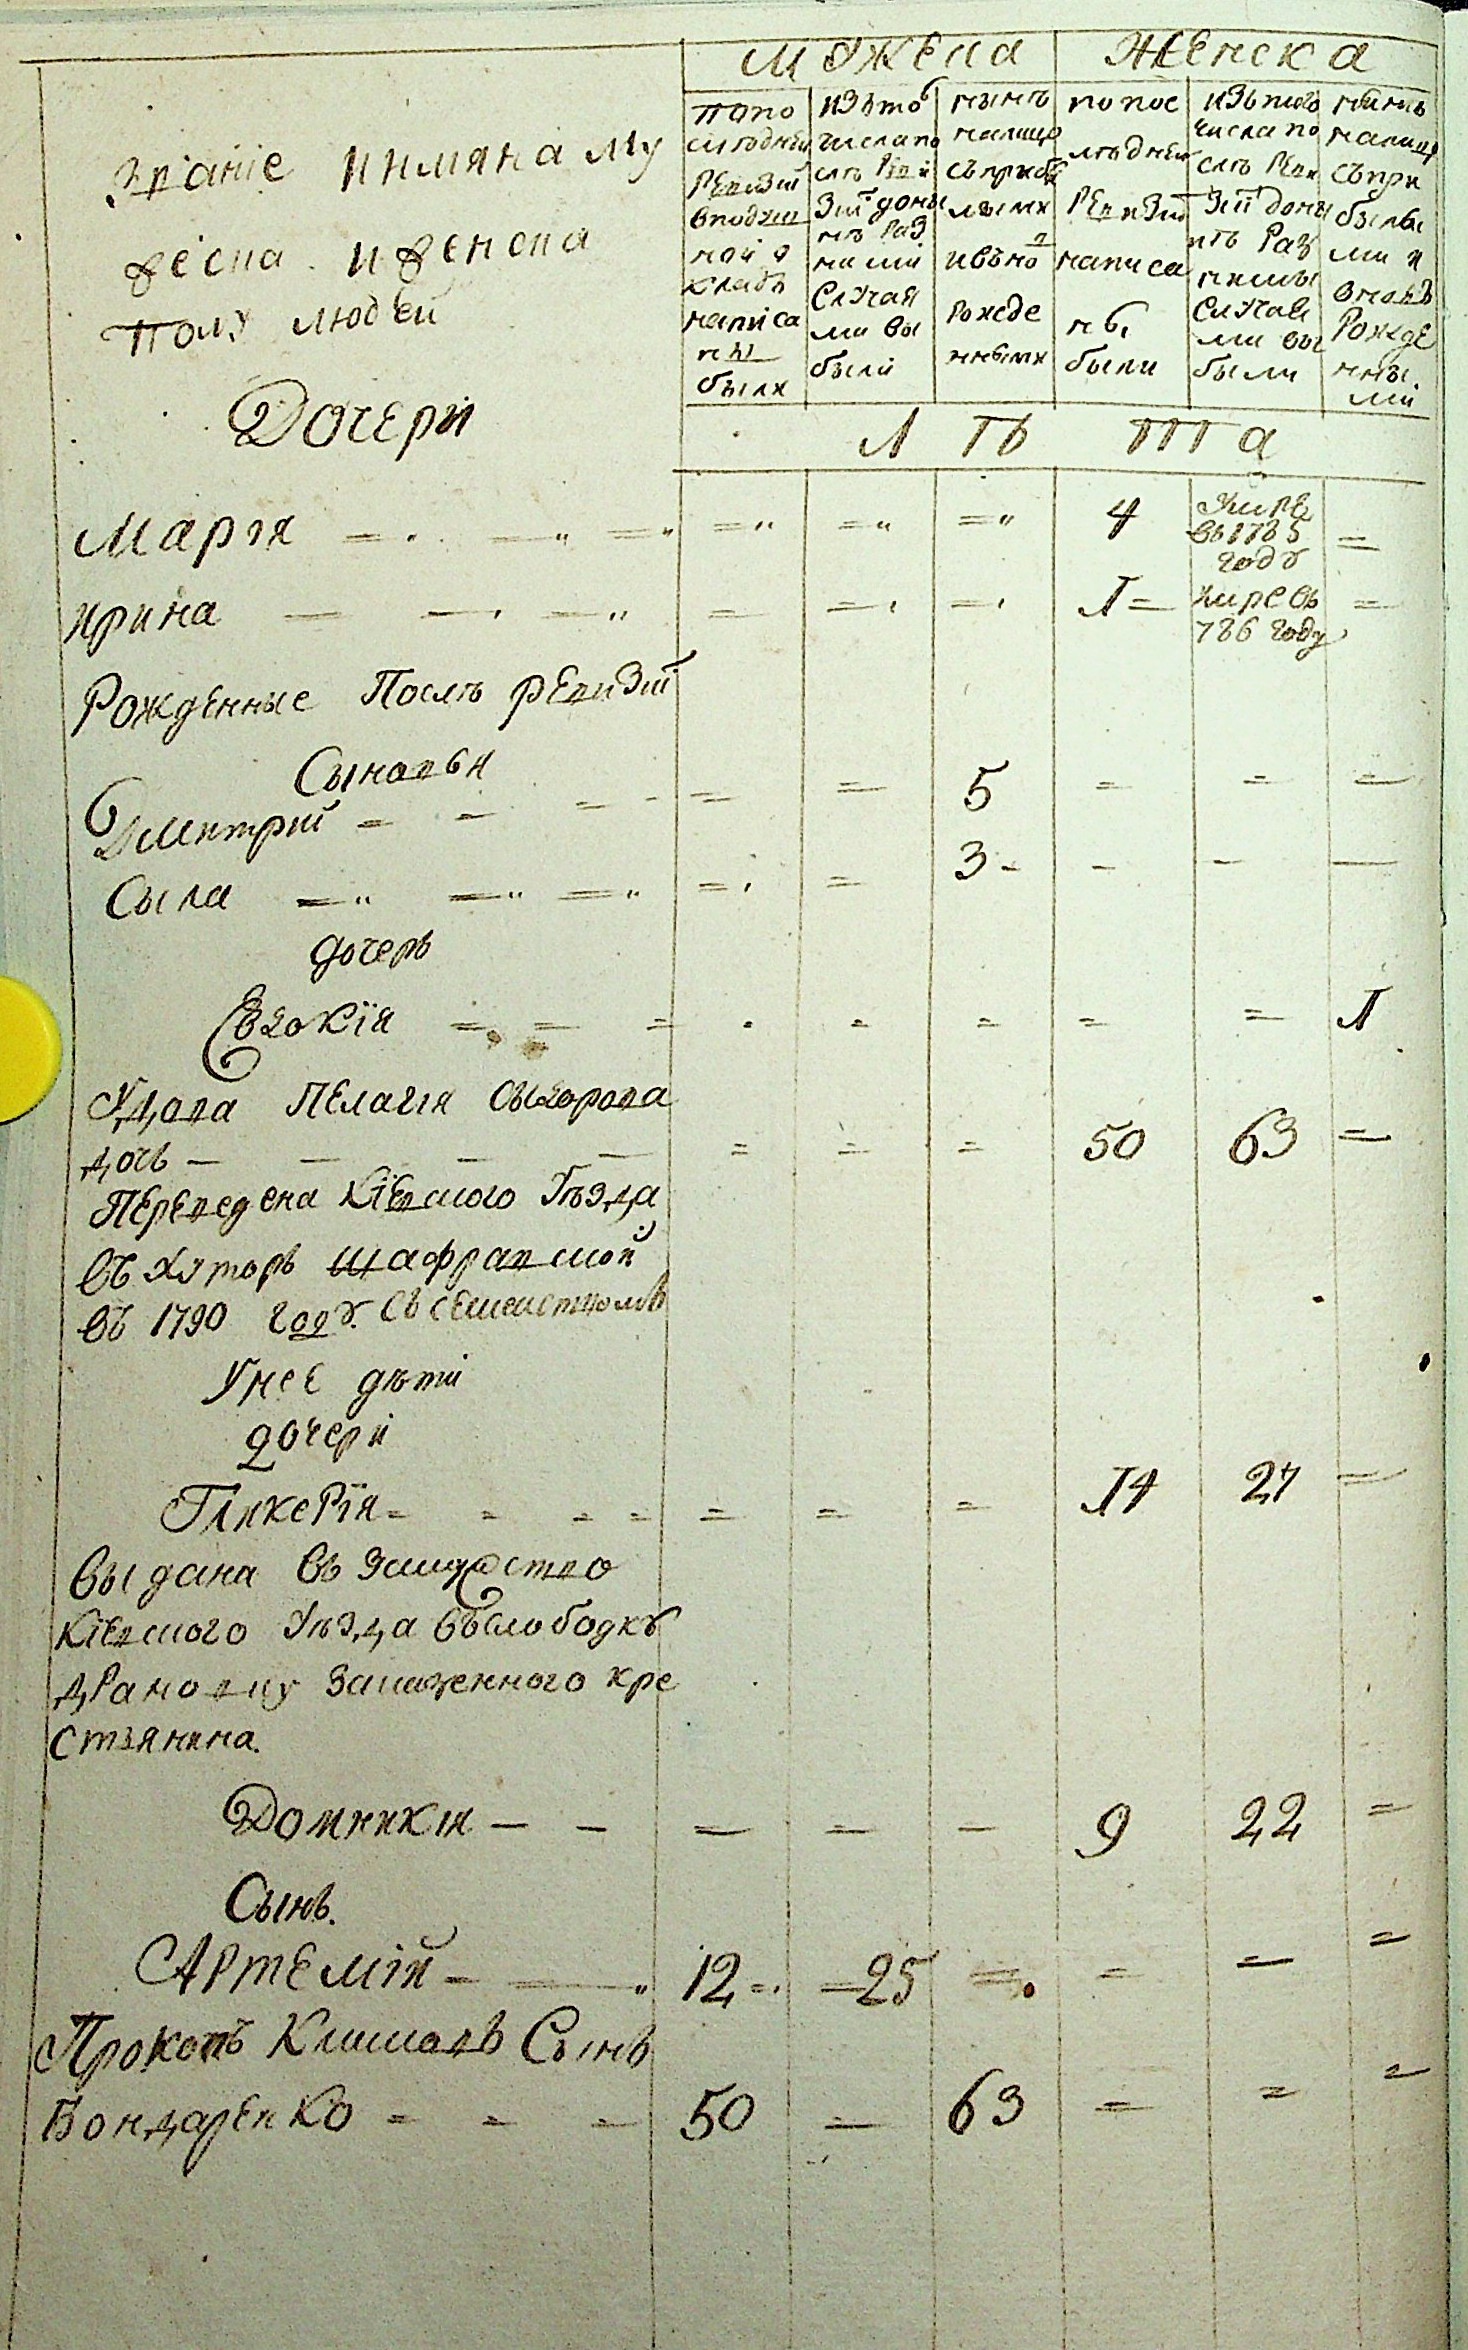 мужеска
женска
Званіе и имяна му
жеска и женска
полу людей
попо
следней
Ревизіи
вподуш
ной о
кладъ
написа
ны
были
изъ того
числа по
слѣ Реви
зіи доны
нѣ раз
ними
Случая
ми вы
были
нынѣ
налицо
съ прибы
лыми
и въ но
рожде
нными
по пос
лѣдней
Ревизіи
написа
ны
были
изъ того
числа по
слѣ Реви
зіи доны
нѣ Раз
ними
Случая
ми вы
были
нынѣ
налицо
съ при
былы
ми и
вновъ
Рожде
нны
ми
Дочери
Л Ѣ т а
Марія 4 умре
въ 1785
году
Ирина 1 умре въ
786 году
Рожденные Послѣ Ревизіи
Сыновьи
Дмитрий 5
Сыла 3
дочерь
Евдокія 1
Удова Пелагія Сыдорова
дочь 50 63
Переведена Кіевского Уѣзда
въ хуторъ Шафравской
въ 1790 году. съ семействомъ
У нее дѣти
дочери
Гликерія 14 27
выдана въ замужество
Кіевского Уѣзда въ слободку
за казенного кре
стьянина.
Домникія 9 22
Сынъ.
Артемій 12 25
Прокопъ Климовъ Сынъ
Бондаренко 50 63